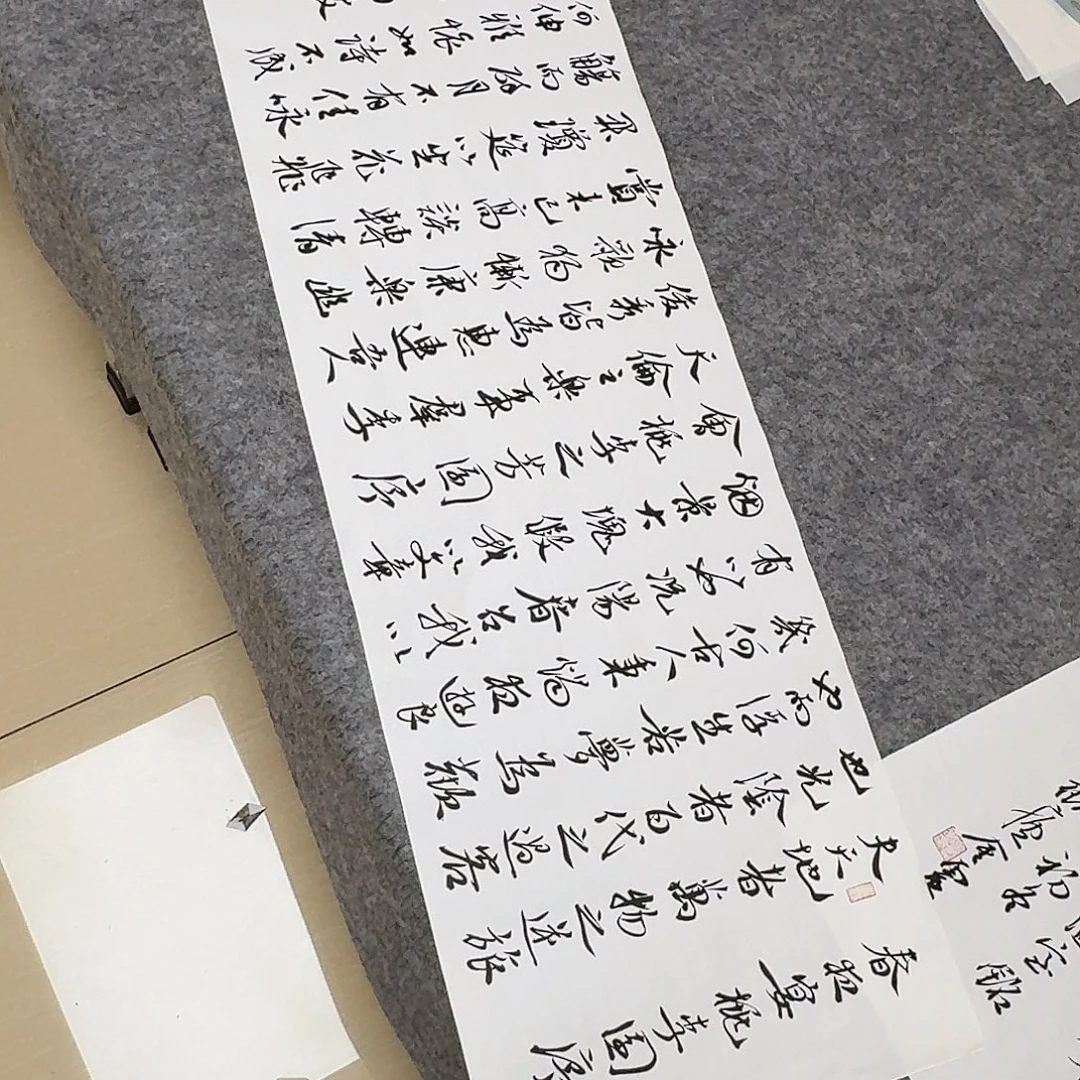 春夜宴桃李園序
夫天地者萬物之逆旅
也光陰者百代之過客
也而浮生若夢為歡
幾何古人秉燭夜遊良
有以也况陽春召我以
烟景大塊假我以文章
會桃李之芳園序
天倫之樂事羣季
俊秀皆為惠連吾人
詠歌獨慚康樂幽
賞未已高談轉清
瓊筵以坐花飛
觴而醉月不有佳詠
何伸雅懷如詩不成
室銘